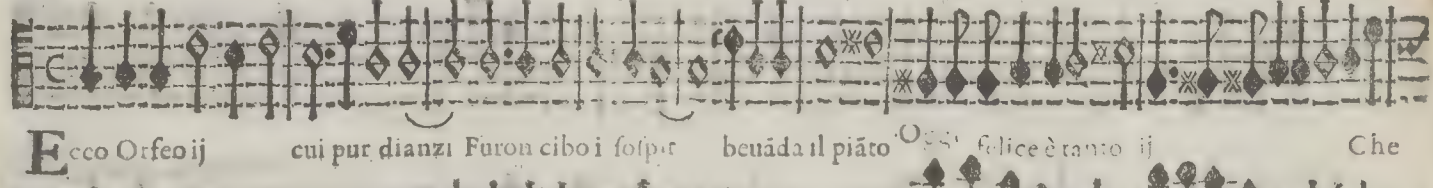 Ecco Orfeo ij cui pur dianzi Furon cibo i sospir beuāda il piāto Oggi felice è tanto ij Che